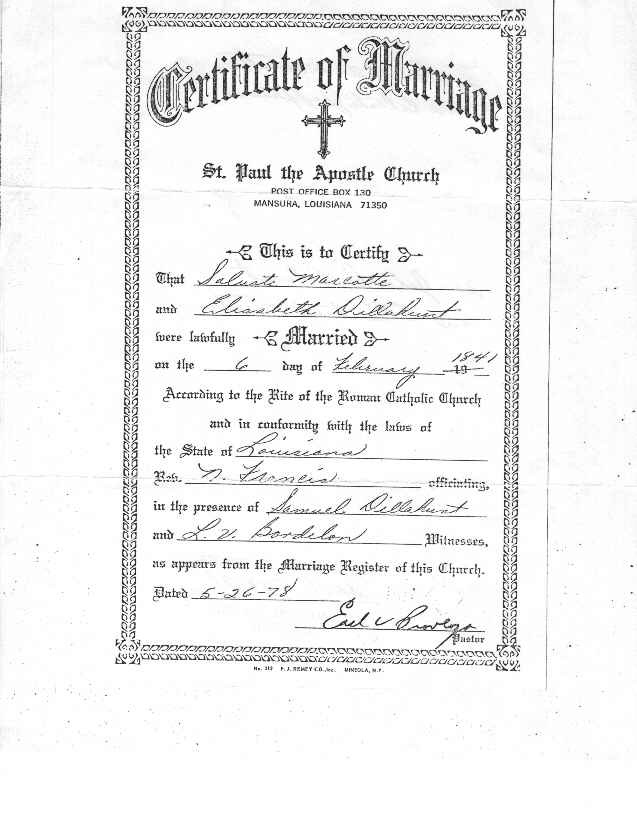 Certificate of Marriage
St. Paul the Apostle Church
POST OFFICE BOX 130
MANSURA, LOUISIANA 71350
This is to Certify
That Salvato Marcotte
and Elisabeth Dillahunt
were lawfully Married
on the 6 day of February 1841 19
According to the Rite of the Roman Catholic Church
and in conformity with the laws of
the State of Louisiana
Rev. N. Francis officiating,
in the presence of Samuel Dillahunt
and L. V. Bordelon Witnesses,
as appears from the Marriage Register of this Church.
Dated 5-26-78
Earl V
Pastor
No. 312 F. J. REMEY CO., Inc. MINEOLA, N.Y.